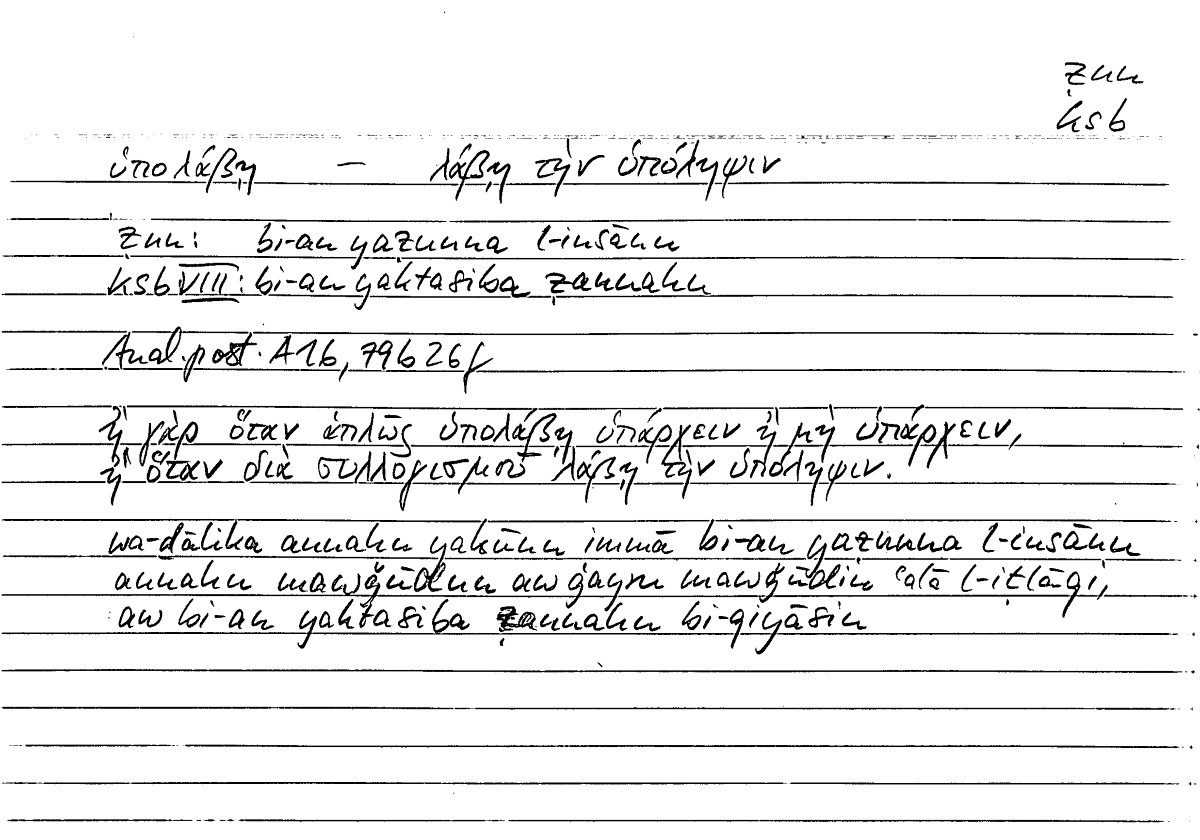 ẓnn
ksb
ὑπολάβῃ — λάβῃ τὴν ὑπόληψιν
ẓnn: bi-an yaẓunna l-insānu
ksb VIII: bi-an yaktasiba ẓannahu
Anal. post. A 16, 79b 26f
ἢ γὰρ ὅταν ἁπλῶς ὑπολάβῃ ὑπάρχειν ἢ μὴ ὑπάρχειν,
ἢ ὅταν διὰ συλλογισμοῦ λάβῃ τὴν ὑπόληψιν.
wa-ḏālika annahu yakūnu immā bi-an yaẓunna l-insānu
annahu mawǧūdun aw ġayru mawǧūdin ʿalā l-iṭlāqi,
aw bi-an yaktasiba ẓannahu bi-qiyāsin